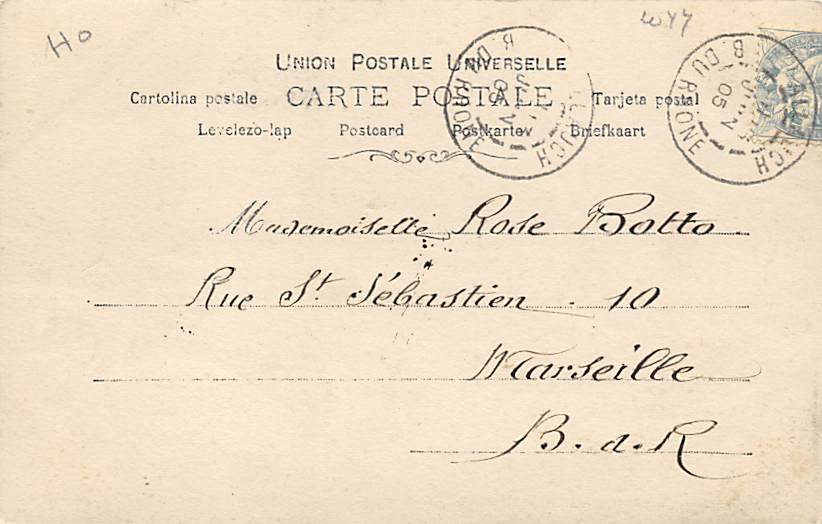 Ho
UNION POSTALE UNIVERSELLE
Cartolina postale CARTE POSTALE Tarjeta postal
Levelezo-lap Postcard Postkartev Briefkaart
B. DU RHONE
B. DU RHONE 05
Mademoiselle Rose Botto
Rue St Sébastien . 10
Marseille
B. d. R